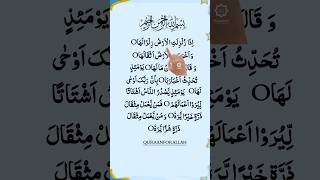 بِسْمِ اللهِ الرَّحْمٰنِ الرَّحِيْمِ
اِذَا زُلْزِلَتِ الْاَرْضُ زِلْزَالَهَا
وَاَخْرَجَتِ الْاَرْضُ اَثْقَالَهَا
وَ قَالَ مَا لَهَا يَوْمَئِذٍ
تُحَدِّثُ اَخْبَارَهَا بِاَنَّ رَبَّكَ اَوْحٰى
لَهَا يَوْمَئِذٍ يَّصْدُرُ النَّاسُ اَشْتَاتًا
لِّيُرَوْا اَعْمَالَهُمْ فَمَنْ يَّعْمَلْ مِثْقَالَ
ذَرَّةٍ خَيْرًا يَّرَهٗ وَمَنْ يَّعْمَلْ مِثْقَالَ
ذَرَّةٍ شَرًّا يَّرَهٗ
QURAANFORALLAH